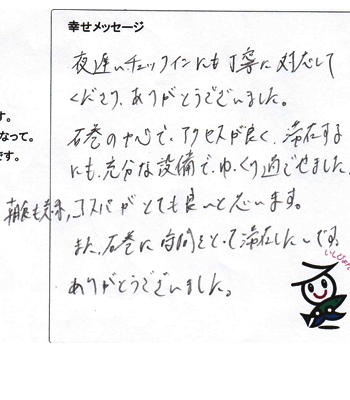 幸せメッセージ
夜遅いチェックインにも丁寧に対応して
くださり、ありがとうございました。
石巻の中心で、アクセスが良く、滞在する
す。
にも、充分な設備で、ゆっくり過ごせました。
なって。
です。
朝食も美味、コスパがとても良いと思います。
また、石巻に時間をとって滞在したいです。
ありがとうございました。